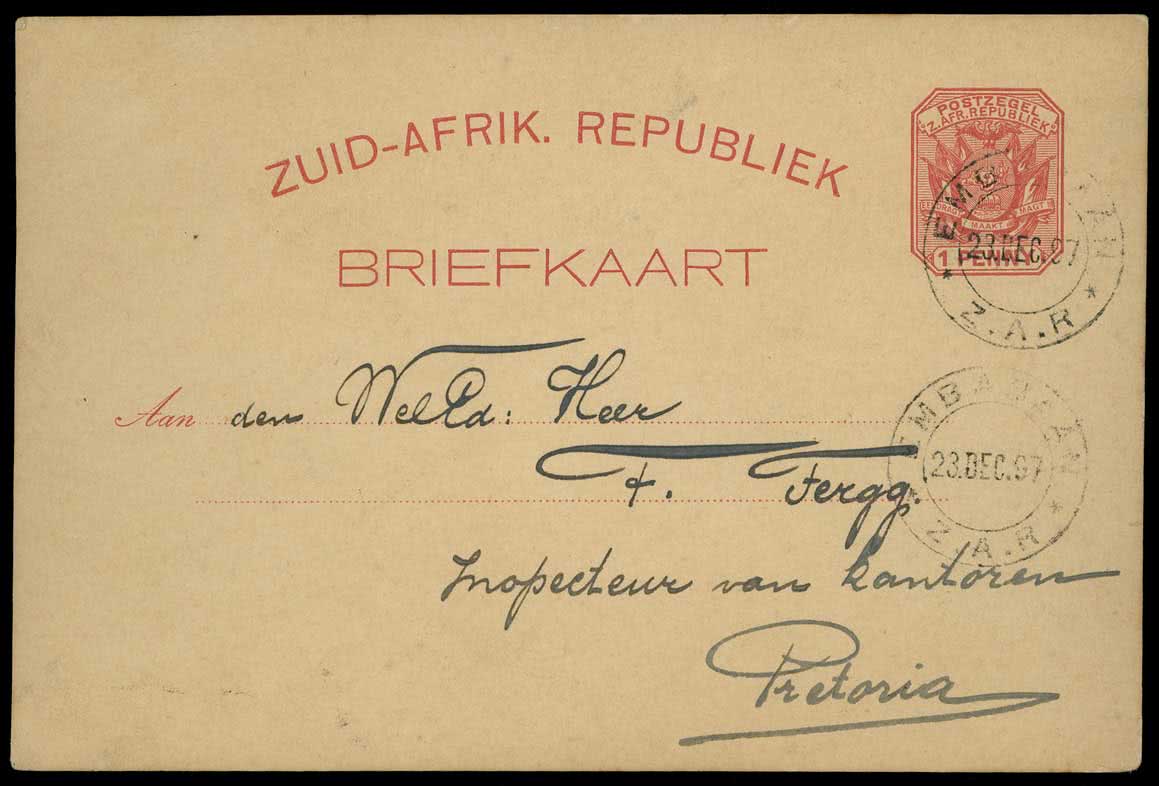 ZUID-AFRIK. REPUBLIEK
BRIEFKAART
POSTZEGEL
Z. AFR. REPUBLIEK
EENDRAGT MAAKT MAGT
1 PENNY
EMB
23.DEC.97
Z.A.R
Aan den WelEd: Heer
F. Fergg.
Inspecteur van kantoren
Pretoria
EMBABAAN
23.DEC.97
Z.A.R